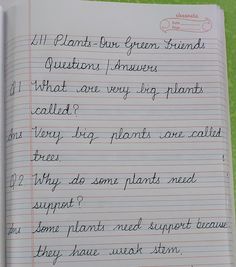 classmate
Date
Page
L11 Plants-Our Green Friends
Questions / Answers
Q1 What are very big plants
called?
Ans Very big plants are called
trees.
Q2 Why do some plants need
support?
Ans Some plants need support because
they have weak stem.